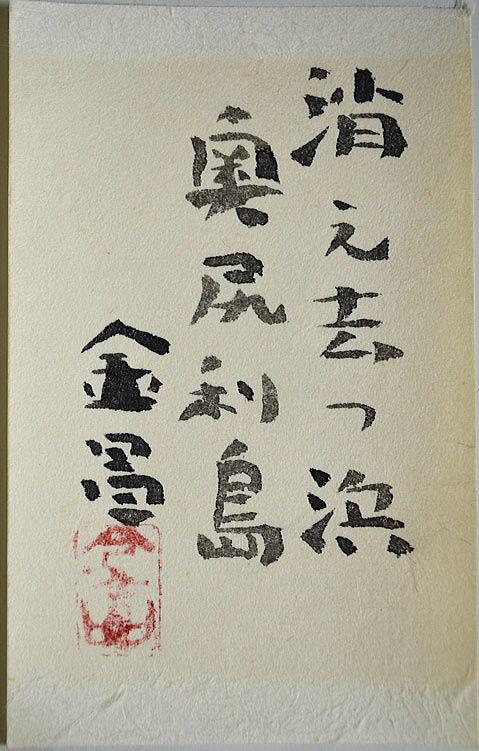 消え去っ浜
奥尻利島
金